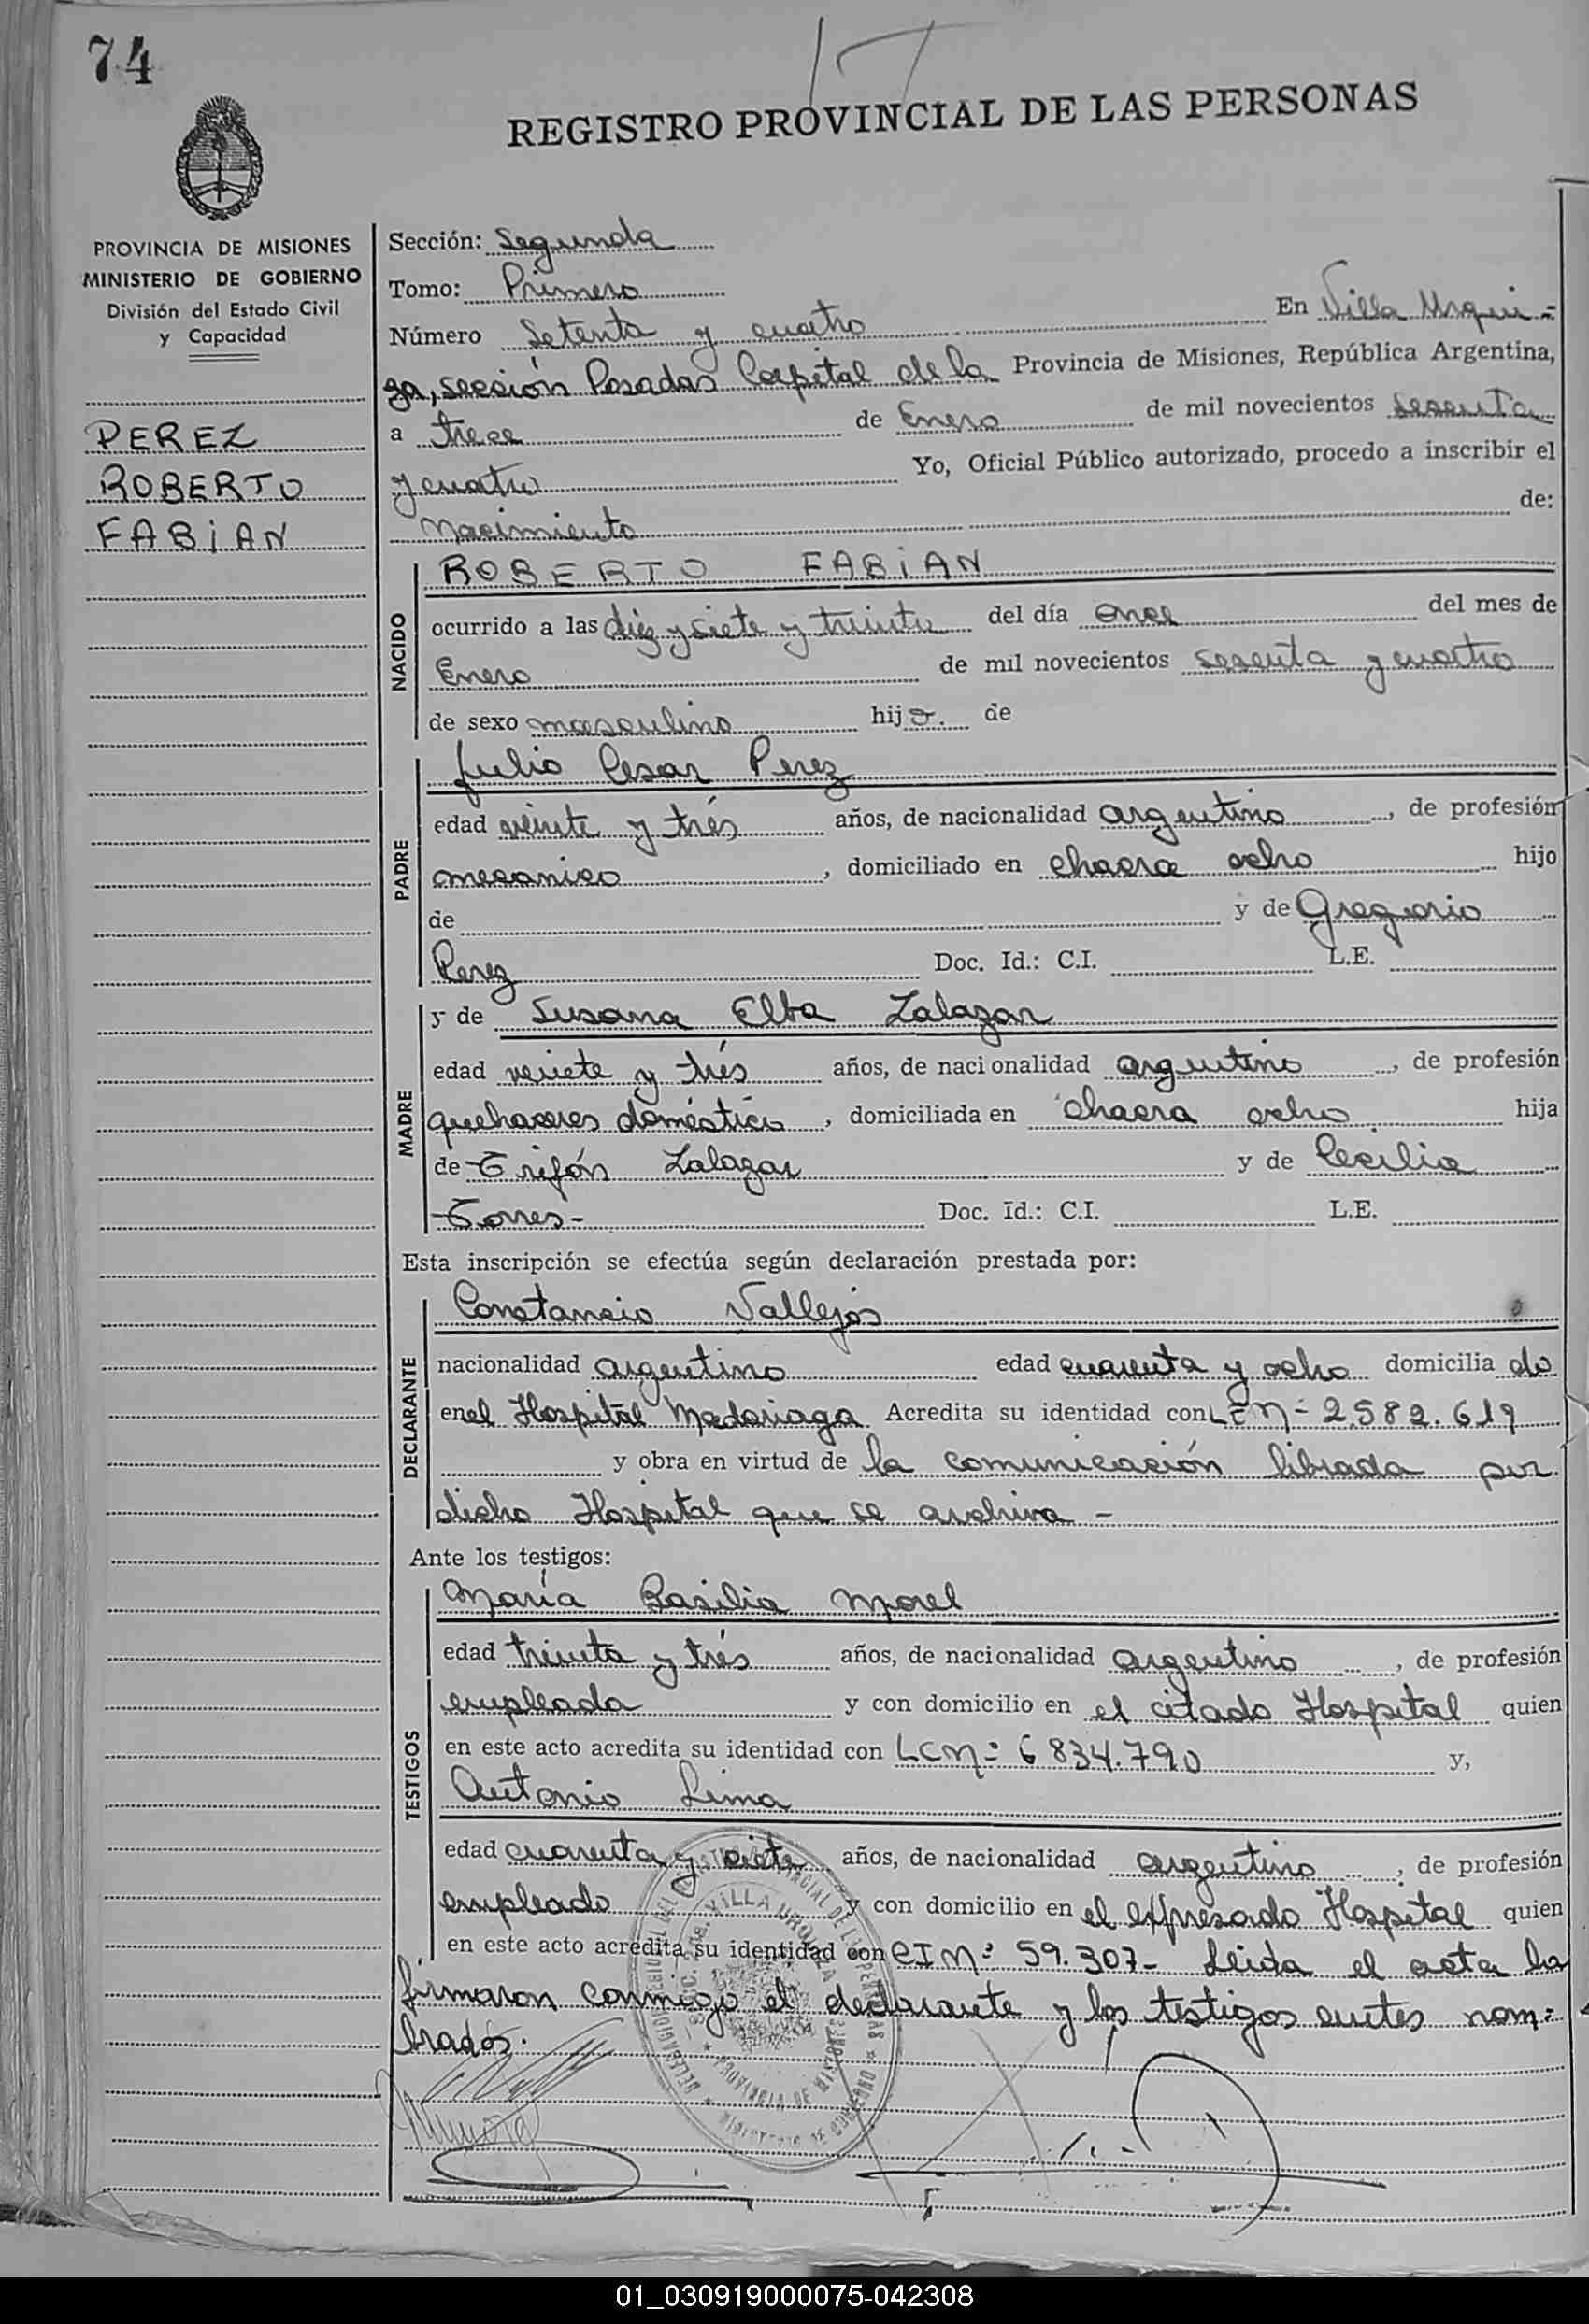 74
REGISTRO PROVINCIAL DE LAS PERSONAS
PROVINCIA DE MISIONES
MINISTERIO DE GOBIERNO
División del Estado Civil
y Capacidad
PEREZ
ROBERTO
FABIAN
Sección: Segunda
Tomo: Primero
Número Setenta y cuatro En Villa Urqui=
za, sección Posadas Capital de la Provincia de Misiones, República Argentina,
a trece de Enero de mil novecientos sesenta
y cuatro Yo, Oficial Público autorizado, procedo a inscribir el
Nacimiento de:
NACIDO
ROBERTO FABIAN
ocurrido a las diez y siete y treinta del día once del mes de
Enero de mil novecientos sesenta y cuatro
de sexo masculino hijo. de
PADRE
Julio Cesar Perez
edad veinte y trés años, de nacionalidad argentino, de profesión
mecanico, domiciliado en chacra ocho hijo
de y de Gregorio
Perez Doc. Id.: C.I. L.E.
MADRE
y de Susana Elba Zalazar
edad veinte y trés años, de nacionalidad argentino, de profesión
quehaceres doméstico, domiciliada en chacra ocho hija
de Trifón Zalazar y de Cecilia
Torres- Doc. Id.: C.I. L.E.
Esta inscripción se efectúa según declaración prestada por:
DECLARANTE
Constancio Vallejos
nacionalidad argentino edad cuarenta y ocho domicilia do
en el Hospital Madariaga Acredita su identidad con LEN= 2.582.619
y obra en virtud de la comunicación librada por
dicho Hospital que se archiva -
Ante los testigos:
TESTIGOS
María Basilia Morel
edad treinta y trés años, de nacionalidad argentino, de profesión
empleada y con domicilio en el citado Hospital quien
en este acto acredita su identidad con LCN= 6834.790 y,
Antonio Lima
edad cuarenta y siete años, de nacionalidad argentino, de profesión
empleado y con domicilio en el expresado Hospital quien
en este acto acredita su identidad con CIN= 59.307- Leida el acta la
firmaron conmigo el declarante y los testigos antes nom=
brados.
VILLA URQUIZA
PROVINCIA DE MISIONES
MINISTERIO DE GOBIERNO
01_030919000075-042308